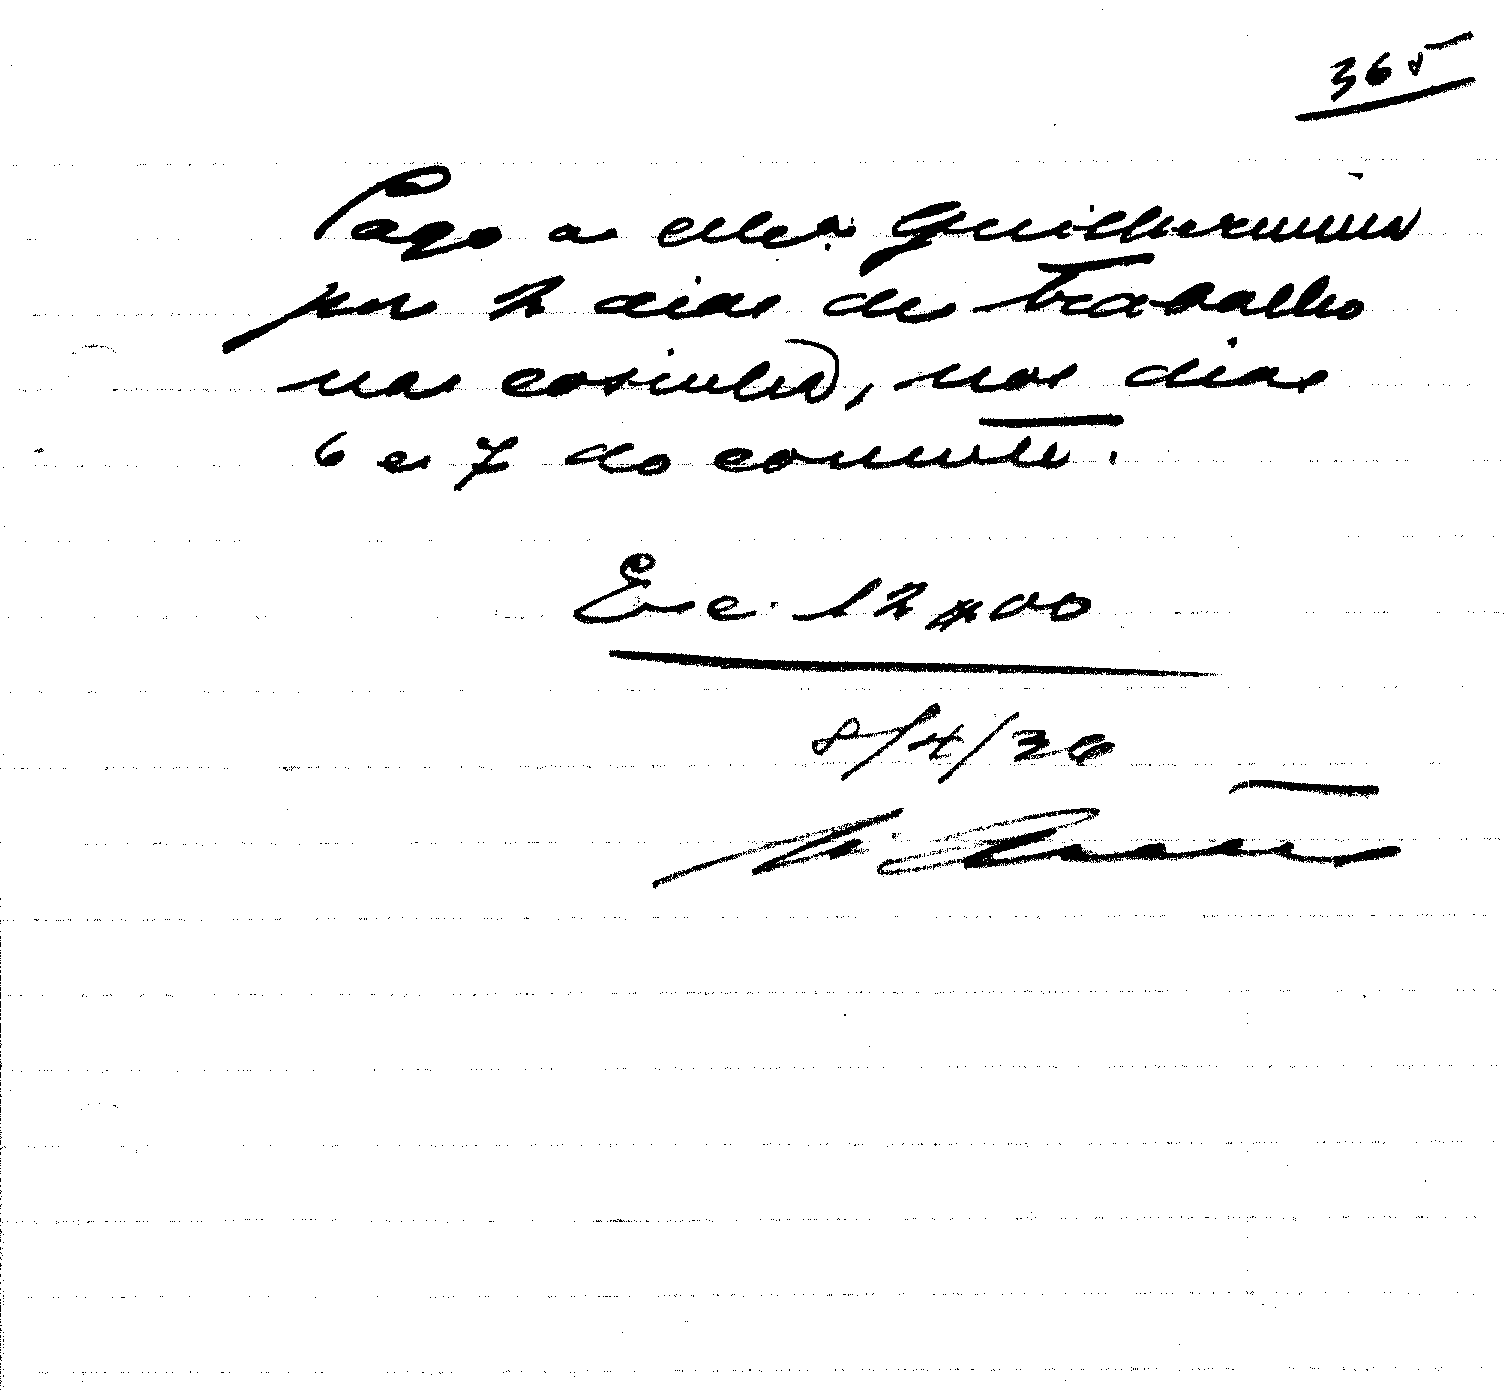 365
Pago a Guilhermina
por 2 dias de trabalho
na cosinha, nos dias
6 e 7 do corrente.
Esc. 12$00
8/4/36